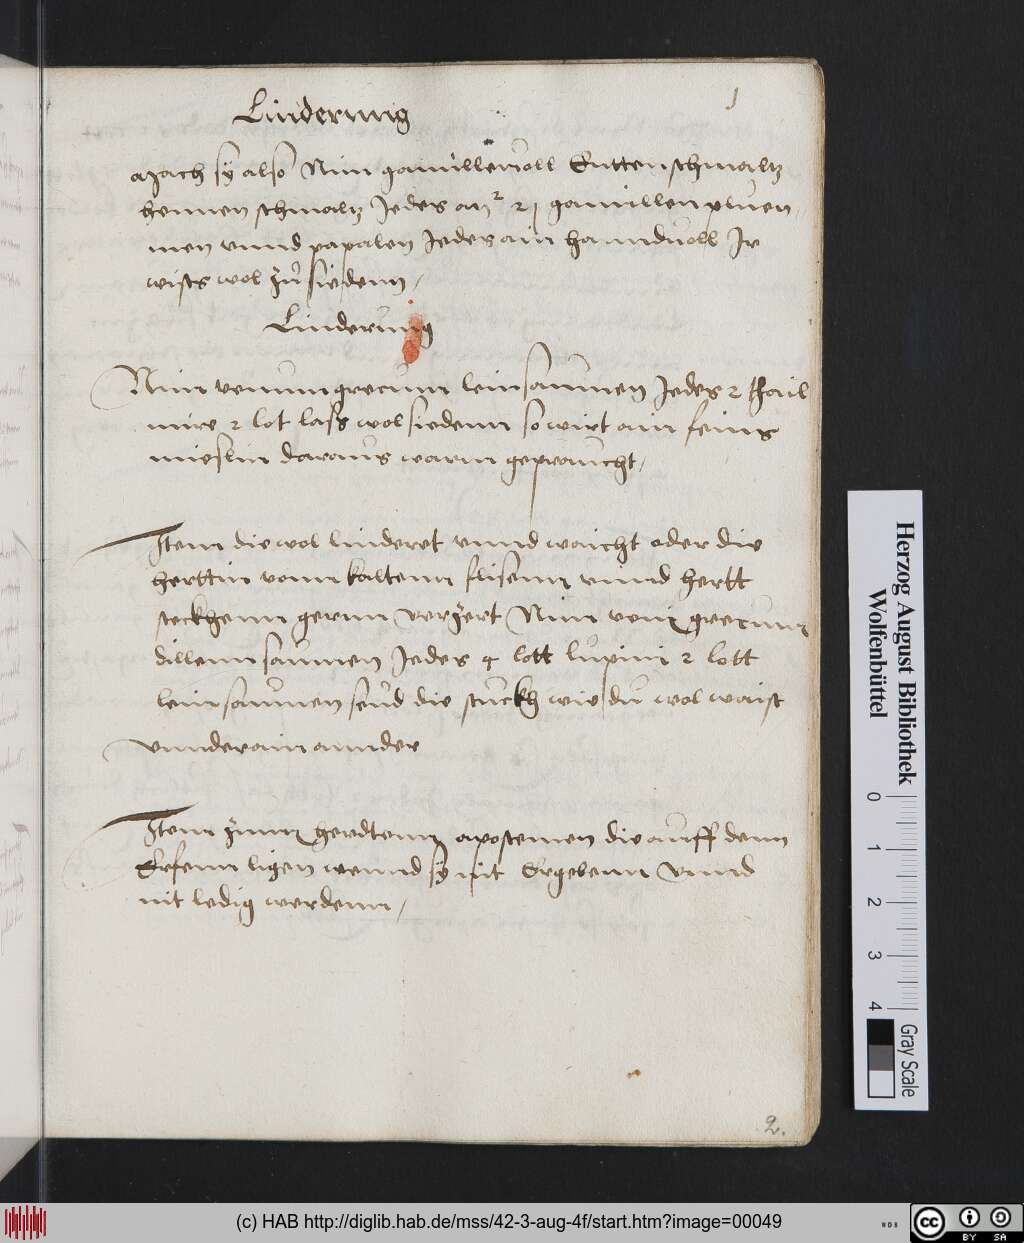 Linderung
1
Mach sy also Nim gamillenöll Enttenschmaltz
hennen schmaltz Jedes an² 2j gamillenpluen
men vnnd papalen Jedes ain hanndtuoll Ir
wists wol zů siedenn /
Linderung
Nim venum grecum leinsaumen Jedes 2 thail
mirr 2 lot lass wol siedenn so wirt ain feins
mieslin daraus warm gepraucht /
Item die wol linderet vnnd waicht oder die
herttin vonn kaltenn flisenn vnnd hertt
steckhenn gernn verzert Nim venū grecum
dillennsaumen Jedes 4 lott lupini 2 lott
leinsaumen seud die stuckh wie du wol waist
vnnderainannder
Item zum herdtenn apostemen die auff denn
Ersenn ligen wennd sy nit Ergebenn vnnd
nit ledig werdenn /
2.
Herzog August Bibliothek
Wolfenbüttel
0 1 2 3 4
Gray Scale
(c) HAB http://diglib.hab.de/mss/42-3-aug-4f/start.htm?image=00049
WDB
cc BY SA